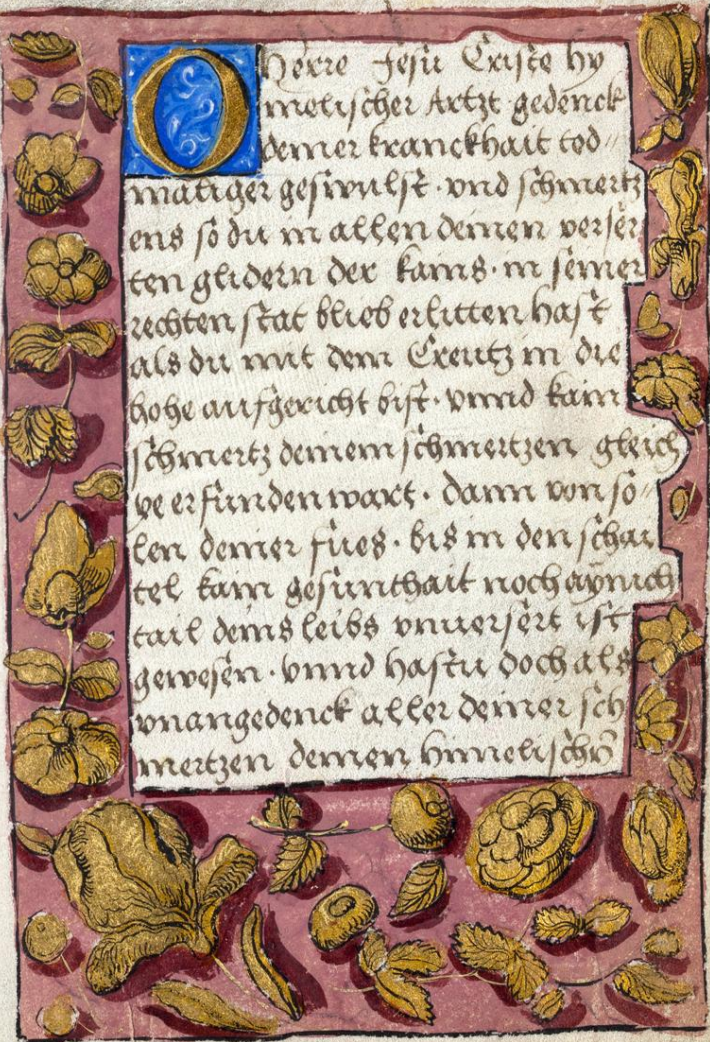 O Herre Jesu Criste hy
melischer Artzt gedenck
deiner kranckhait tod〃
mattiger geswulst · vnd schmertz
ens so du in allen deinen verser
ten glidern der kains · in seiner
rechten stat blieb erlitten hast
als du mit dem Creutz in die
hohe aufgericht bist · vnnd kain
schmertz deinem schmertzen gleich
ye erfunden wart · dann von so〃
len deiner fües · bis in den schai
tel kain gesunthait noch aynich
tail deins leibs vnuersert ist
gewesen · vnnd hastu doch als
vnangedenck aller deiner sch
mertzen deinen himelischen̄